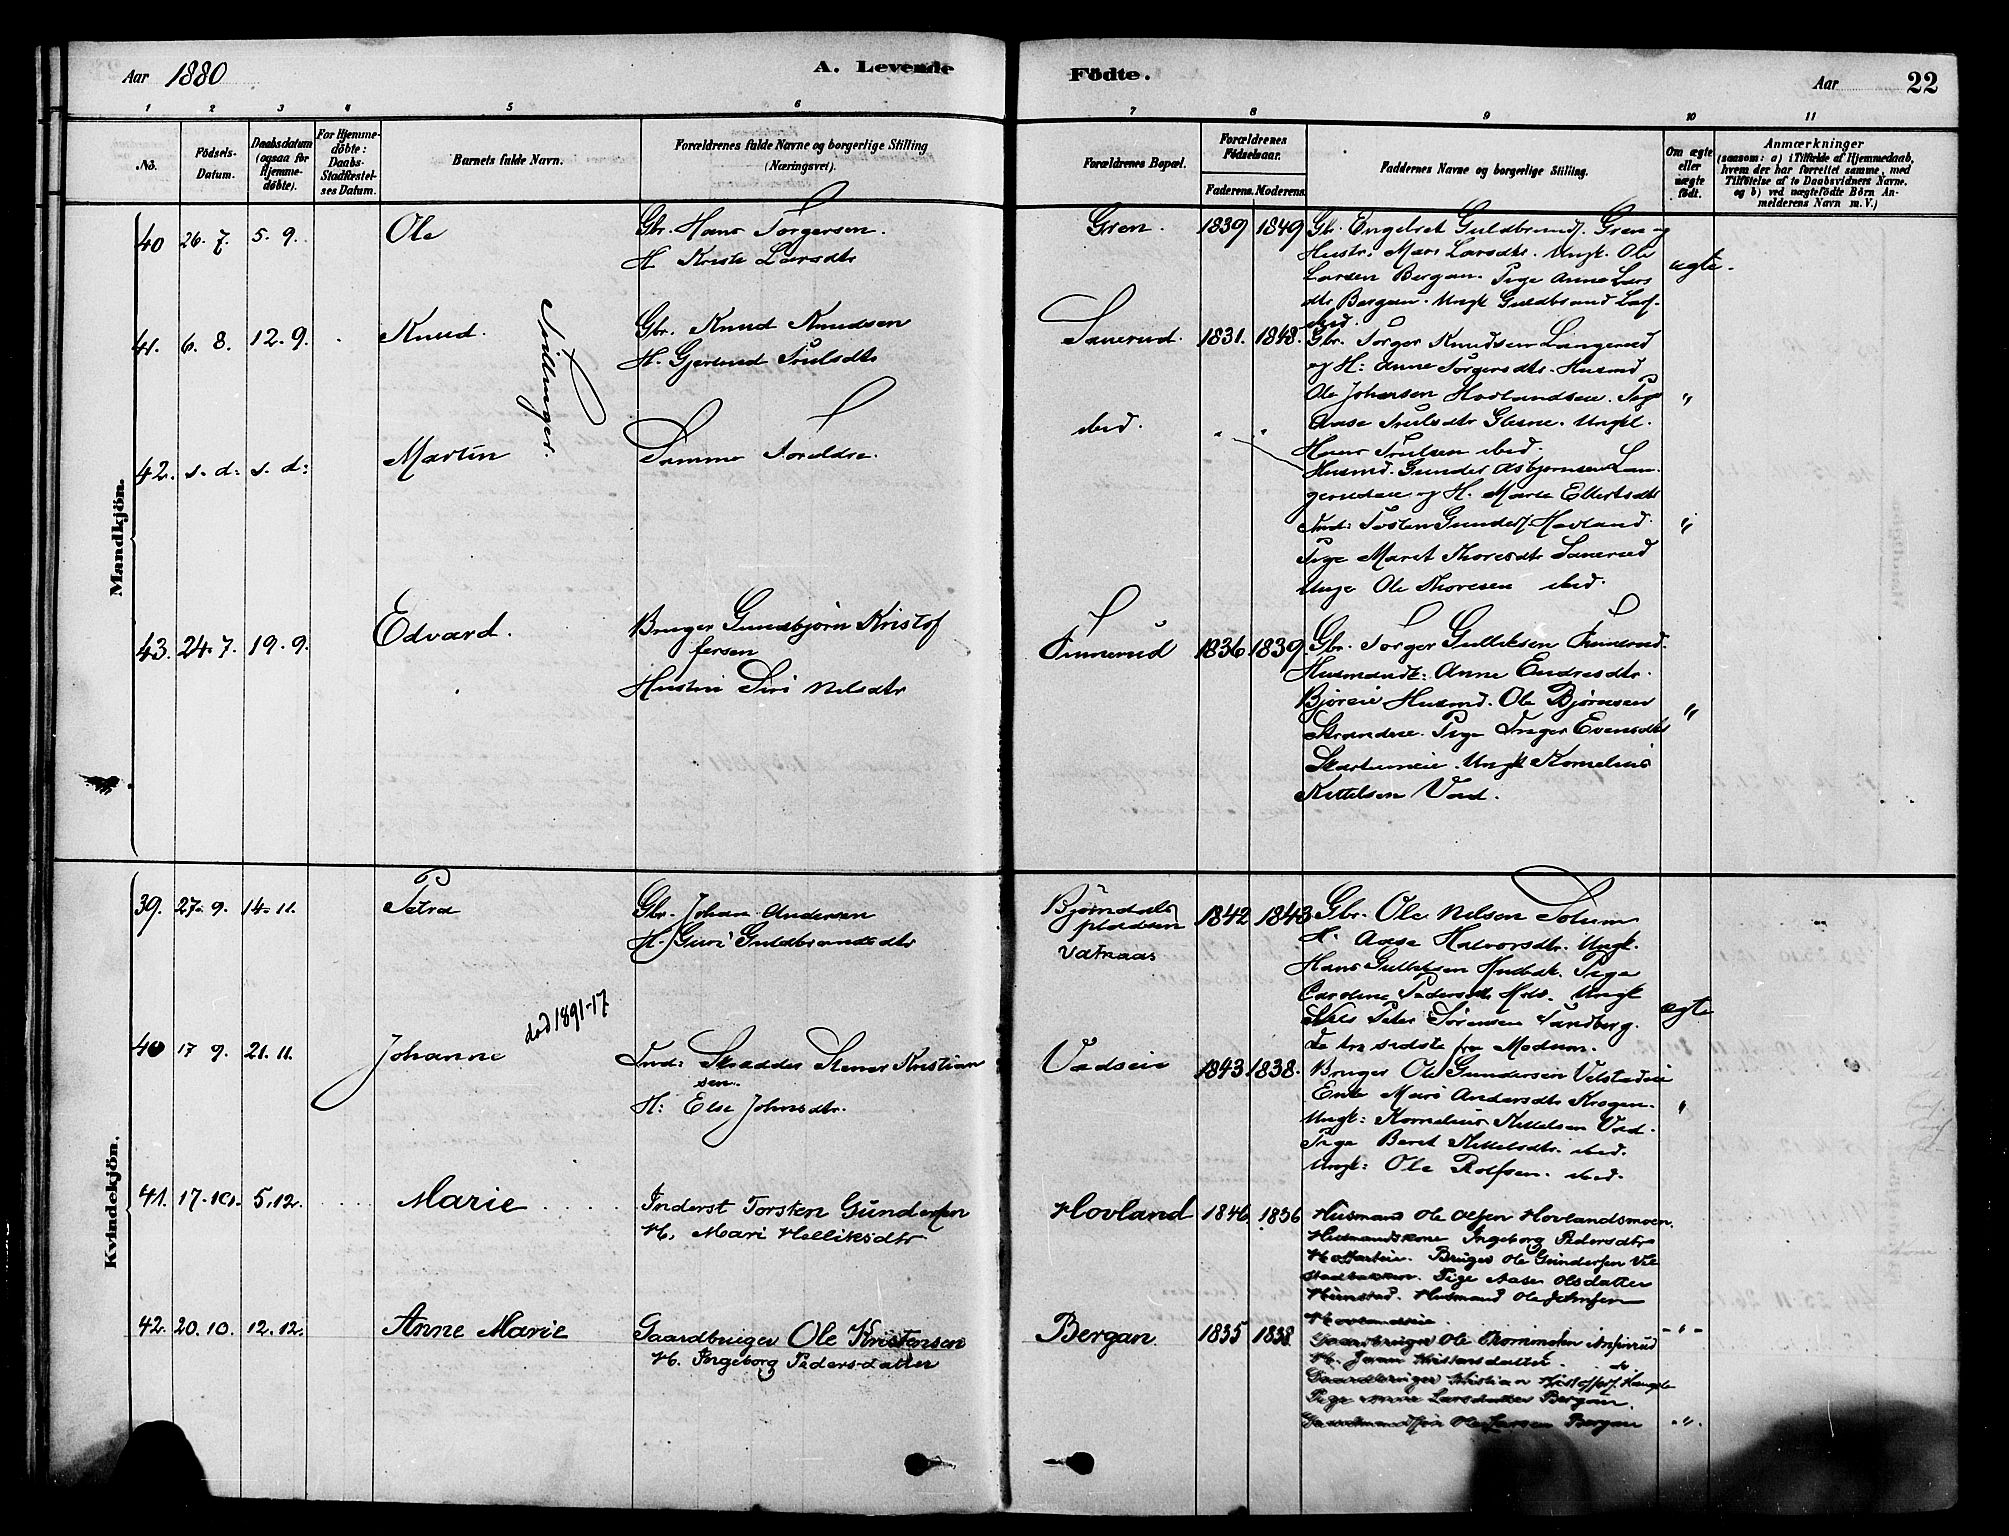 Aar 1880
A. Levende
Födte.
Aar
22
1 2 3 4 5 6 7 8 9 10 11
No.
Födsels-
Datum.
Daabsdatum
(ogsaa for
Hjemme-
döbte).
For Hjemme-
döbte:
Daabs-
Stadfæstel-
ses Datum.
Barnets fulde Navn.
Forældrenes fulde Navne og borgerlige Stilling
(Næringsvei).
Forældrenes Bopæl.
Forældrenes
Födselsaar.
Faderens. Moderens.
Faddernes Navne og borgerlige Stilling.
Om ægte
eller
uægte
födt.
Anmærkninger
(saasom: a) i Tilfælde af Hjemmedaab,
hvem der har forrettet samme, med
Tilföielse af to Daabsvidners Navne.
og b) ved uægtefödte Börn An-
melderens Navn m. V.)
Mandkjön.
40 26. 7. 5. 9. Ole
Gbr. Hans Torgersen.
H. Kristi Larsdtr
Gren. 1839 1849
Gbr. Engebret Guldbrands. Gren og
Hustr. Mari Larsdtr. Ungk. Ole
Larsen Bergan. Pige Anne Lars
dtr Bergan. Ungk Guldbrand Lars.
ibid.
ægte.
41. 6. 8. 12. 9. Knud.
Tvillinger.
Gbr. Knud Knudsen
H. Gjertrud Trulsdtr
Sanerud. 1831. 1848.
Gbr. Torger Knudsen Langerud
og H: Anne Torgersdtr. Husmd
Ole Johansen Hovlandseie. Pige
Aase Trulsdtr Glesne. Ungkl.
Hans Trulsen ibid.
"
42. s. d. s. d: Martin
Samme Foreldre.
ibid. " "
Husmd. Gunder Asbjørnsen Lan-
gerudeie og H. Marie Ellertsdtr
Ind: Tosten Gunders. Hovland.
Pige Marit Thoresdtr Sanerud
Unge Ole Thoresen ibid.
"
43. 24. 7. 19. 9. Edvard.
Bruger Gundbjørn Kristof
fersen
Hustru Siri Nilsdtr
Funnerud 1836 1839.
Gbr. Torger Gulliksen Funnerud.
Husmandsk: Anne Endresdtr.
Bjøreie Husmd. Ole Bjørnsen
Strandeie. Pige Inger Evensdtr
Skartumeie. Ungk Kornelius
Kittelsen Vad.
"
Kvindekjön.
39. 27. 9. 14. 11. Petra
Gbr. Johan Andersen
H. Guri Guldbrandsdtr
Bjørndals
pladsen
Vatnaas
1842 1843
Gbr. Ole Nilsen Solum
H. Aase Halvorsdtr. Ungk.
Hans Gulliksen
Caroline Pedersdtr Ungk
Nils Peter Sørensen Sandberg.
de tre sidste fra Modum.
ægte
40 17 9. 21. 11. Johanne
død 1891-17
Ind: Skrædder Stener Kristian
sen.
H: Else Johnsdtr.
Vadseie 1843 1838.
Bruger Ole Gundersen Velstadeie
Enke Mari Andersdtr Krogen.
Ungk: Kornelius Kittelsen Vad.
Pige Beret Kittelsdtr. ibid.
Ungk: Ole Rolfsen. ibid.
"
41. 17. 10. 5. 12. Marie
Inderst Torsten Gundersen
H. Mari Helliksdtr
Hovland 1846. 1836
Husmand Ole Olsen Hovlandsmoen.
Husmandskone Ingeborg Pedersdtr
Bruger Ole Gundersen Vel
stadbakken. Pige Aase Olsdatter
Husmand Ole Johnsen
Hovlandseie.
- " -
42. 20. 10. 12. 12. Anne Marie
Gaardbruger Ole Kristensen
H. Ingeborg Pedersdatter
Bergan. 1835 1838
Gaardbruger Ole
H. Jøran Kristensdatter. do
Gaardbruger Kristian Kristoffers.
Pige Anne Larsdatter Bergan.
Gaardmandssøn Ole Larsen Bergan
. " .